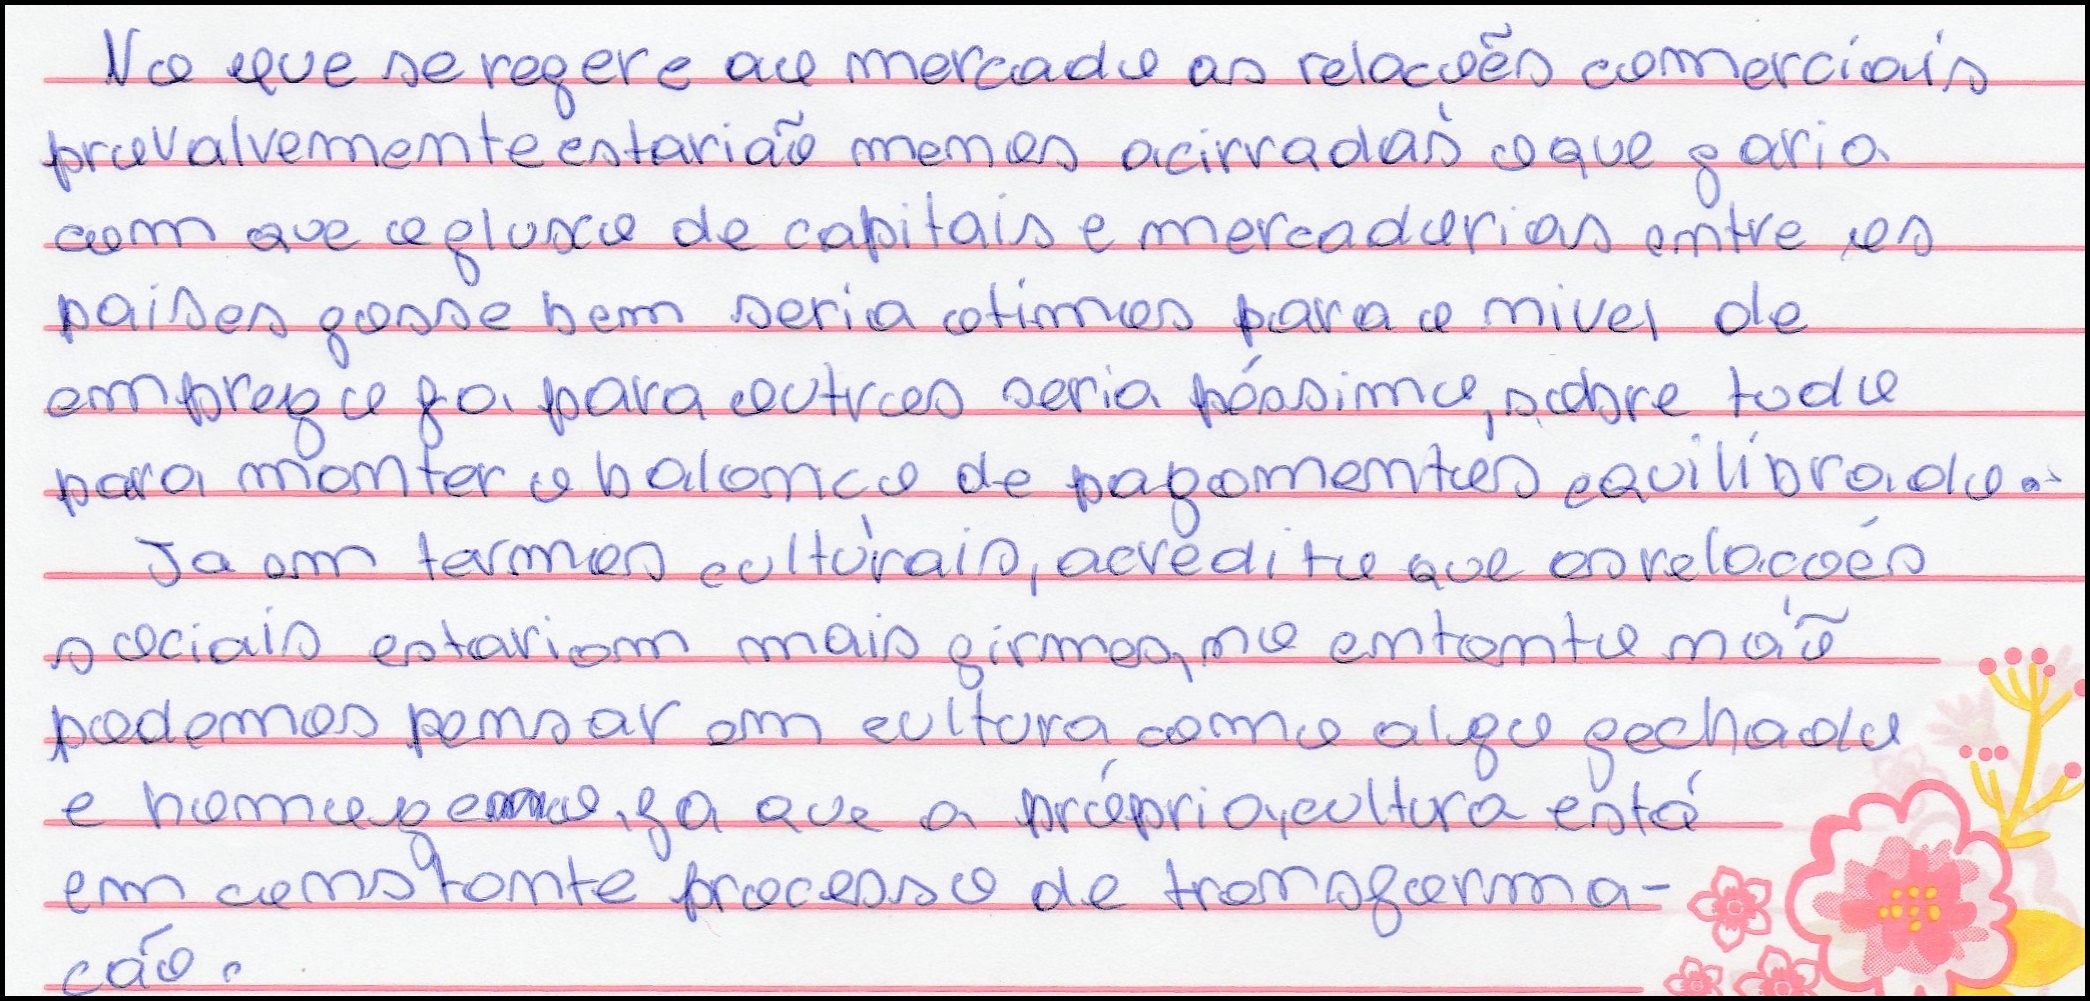 No que se refere ao mercado as relacoẽs comerciais
provalvemente estarião menos acirradas o que faria
com que o fluxo de capitais e mercadorias entre os
paises fosse bem seria otimos para o nivel de
emprego ja para outros seria péssimo, sobre todo
para manter o balanco de pagamentos equilibrado.
Ja em termos culturais, acredito que as relacoés
sociais estariam mais firmes, no entanto não
podemos pensar em cultura como algo fechado
e homogeneo, ja que a própria cultura está
em constante processo de transforma-
cão.